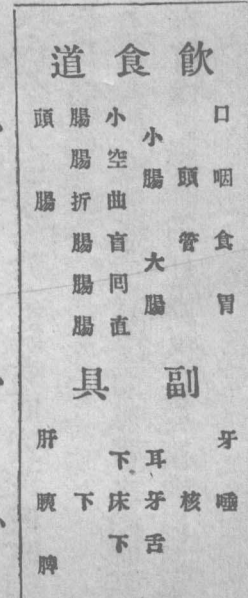 飲食道
口咽食胃
頭管
小腸大腸
小空曲盲回直
腸腸折腸腸腸
頭腸
副具
牙唾
核
耳牙舌
下床下
下
肝胰脾